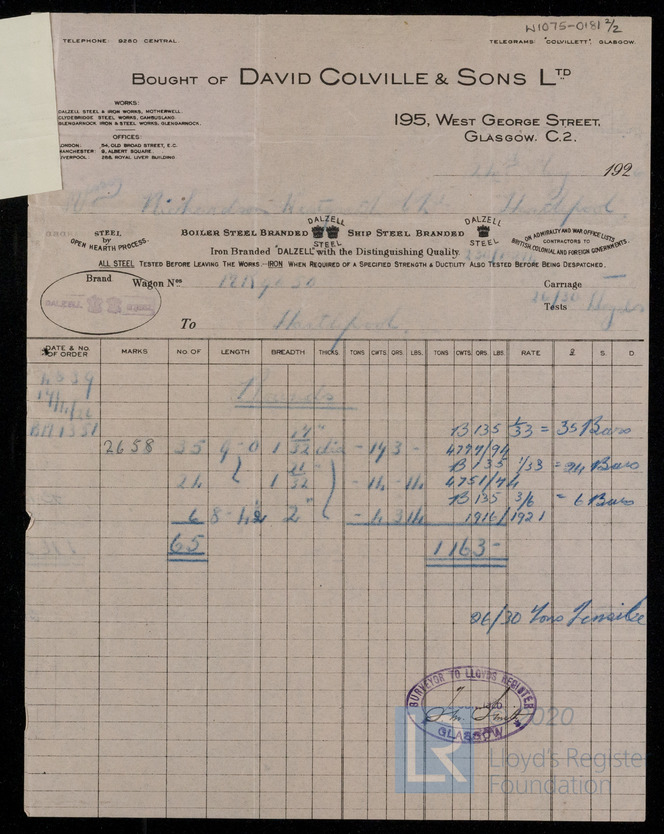 W1075-0181 2/2
TELEPHONE: 9260 CENTRAL.
TELEGRAMS: "COLVILLETT", GLASGOW.
BOUGHT OF DAVID COLVILLE & SONS LTD
WORKS:
DALZELL STEEL & IRON WORKS, MOTHERWELL.
CLYDEBRIDGE STEEL WORKS, CAMBUSLANG.
GLENGARNOCK IRON & STEEL WORKS, GLENGARNOCK.
OFFICES:
LONDON: 54, OLD BROAD STREET, E.C.
MANCHESTER: 8, ALBERT SQUARE.
LIVERPOOL: 255, ROYAL LIVER BUILDING.
195, WEST GEORGE STREET,
GLASGOW. C.2.
192
Richardson Westgarth Hartlepool
STEEL by OPEN HEARTH PROCESS.
BOILER STEEL BRANDED DALZELL STEEL SHIP STEEL BRANDED DALZELL STEEL
ON ADMIRALTY AND WAR OFFICE LISTS CONTRACTORS TO BRITISH, COLONIAL AND FOREIGN GOVERNMENTS.
Iron Branded "DALZELL" with the Distinguishing Quality.
ALL STEEL TESTED BEFORE LEAVING THE WORKS.-IRON WHEN REQUIRED OF A SPECIFIED STRENGTH & DUCTILITY ALSO TESTED BEFORE BEING DESPATCHED.
Brand
Wagon Nos
Carriage
DALZELL STEEL
Tests 26/30 Lloyds
To Hartlepool
DATE & NO. OF ORDER MARKS NO OF LENGTH BREADTH THICKS. TONS CWTS QRS. LBS. TONS CWTS. QRS. LBS. RATE £ S. D.
B 135 1/33 = 35 Bars
2658 35 9-0 1 17/32" dia - 14 3 - 4777/94
B 135 1/33 = 24 Bars
24 1 21/32 - 14 - 14 4751/74
B 135 3/6 = 6 Bars
6 8-4½ 2" - 4 3 14 1916/1921
65 1 163 -
26/30 Tons Tensile
SURVEYOR TO LLOYDS REGISTER
GLASGOW
LR
2020
Lloyd's Register
Foundation